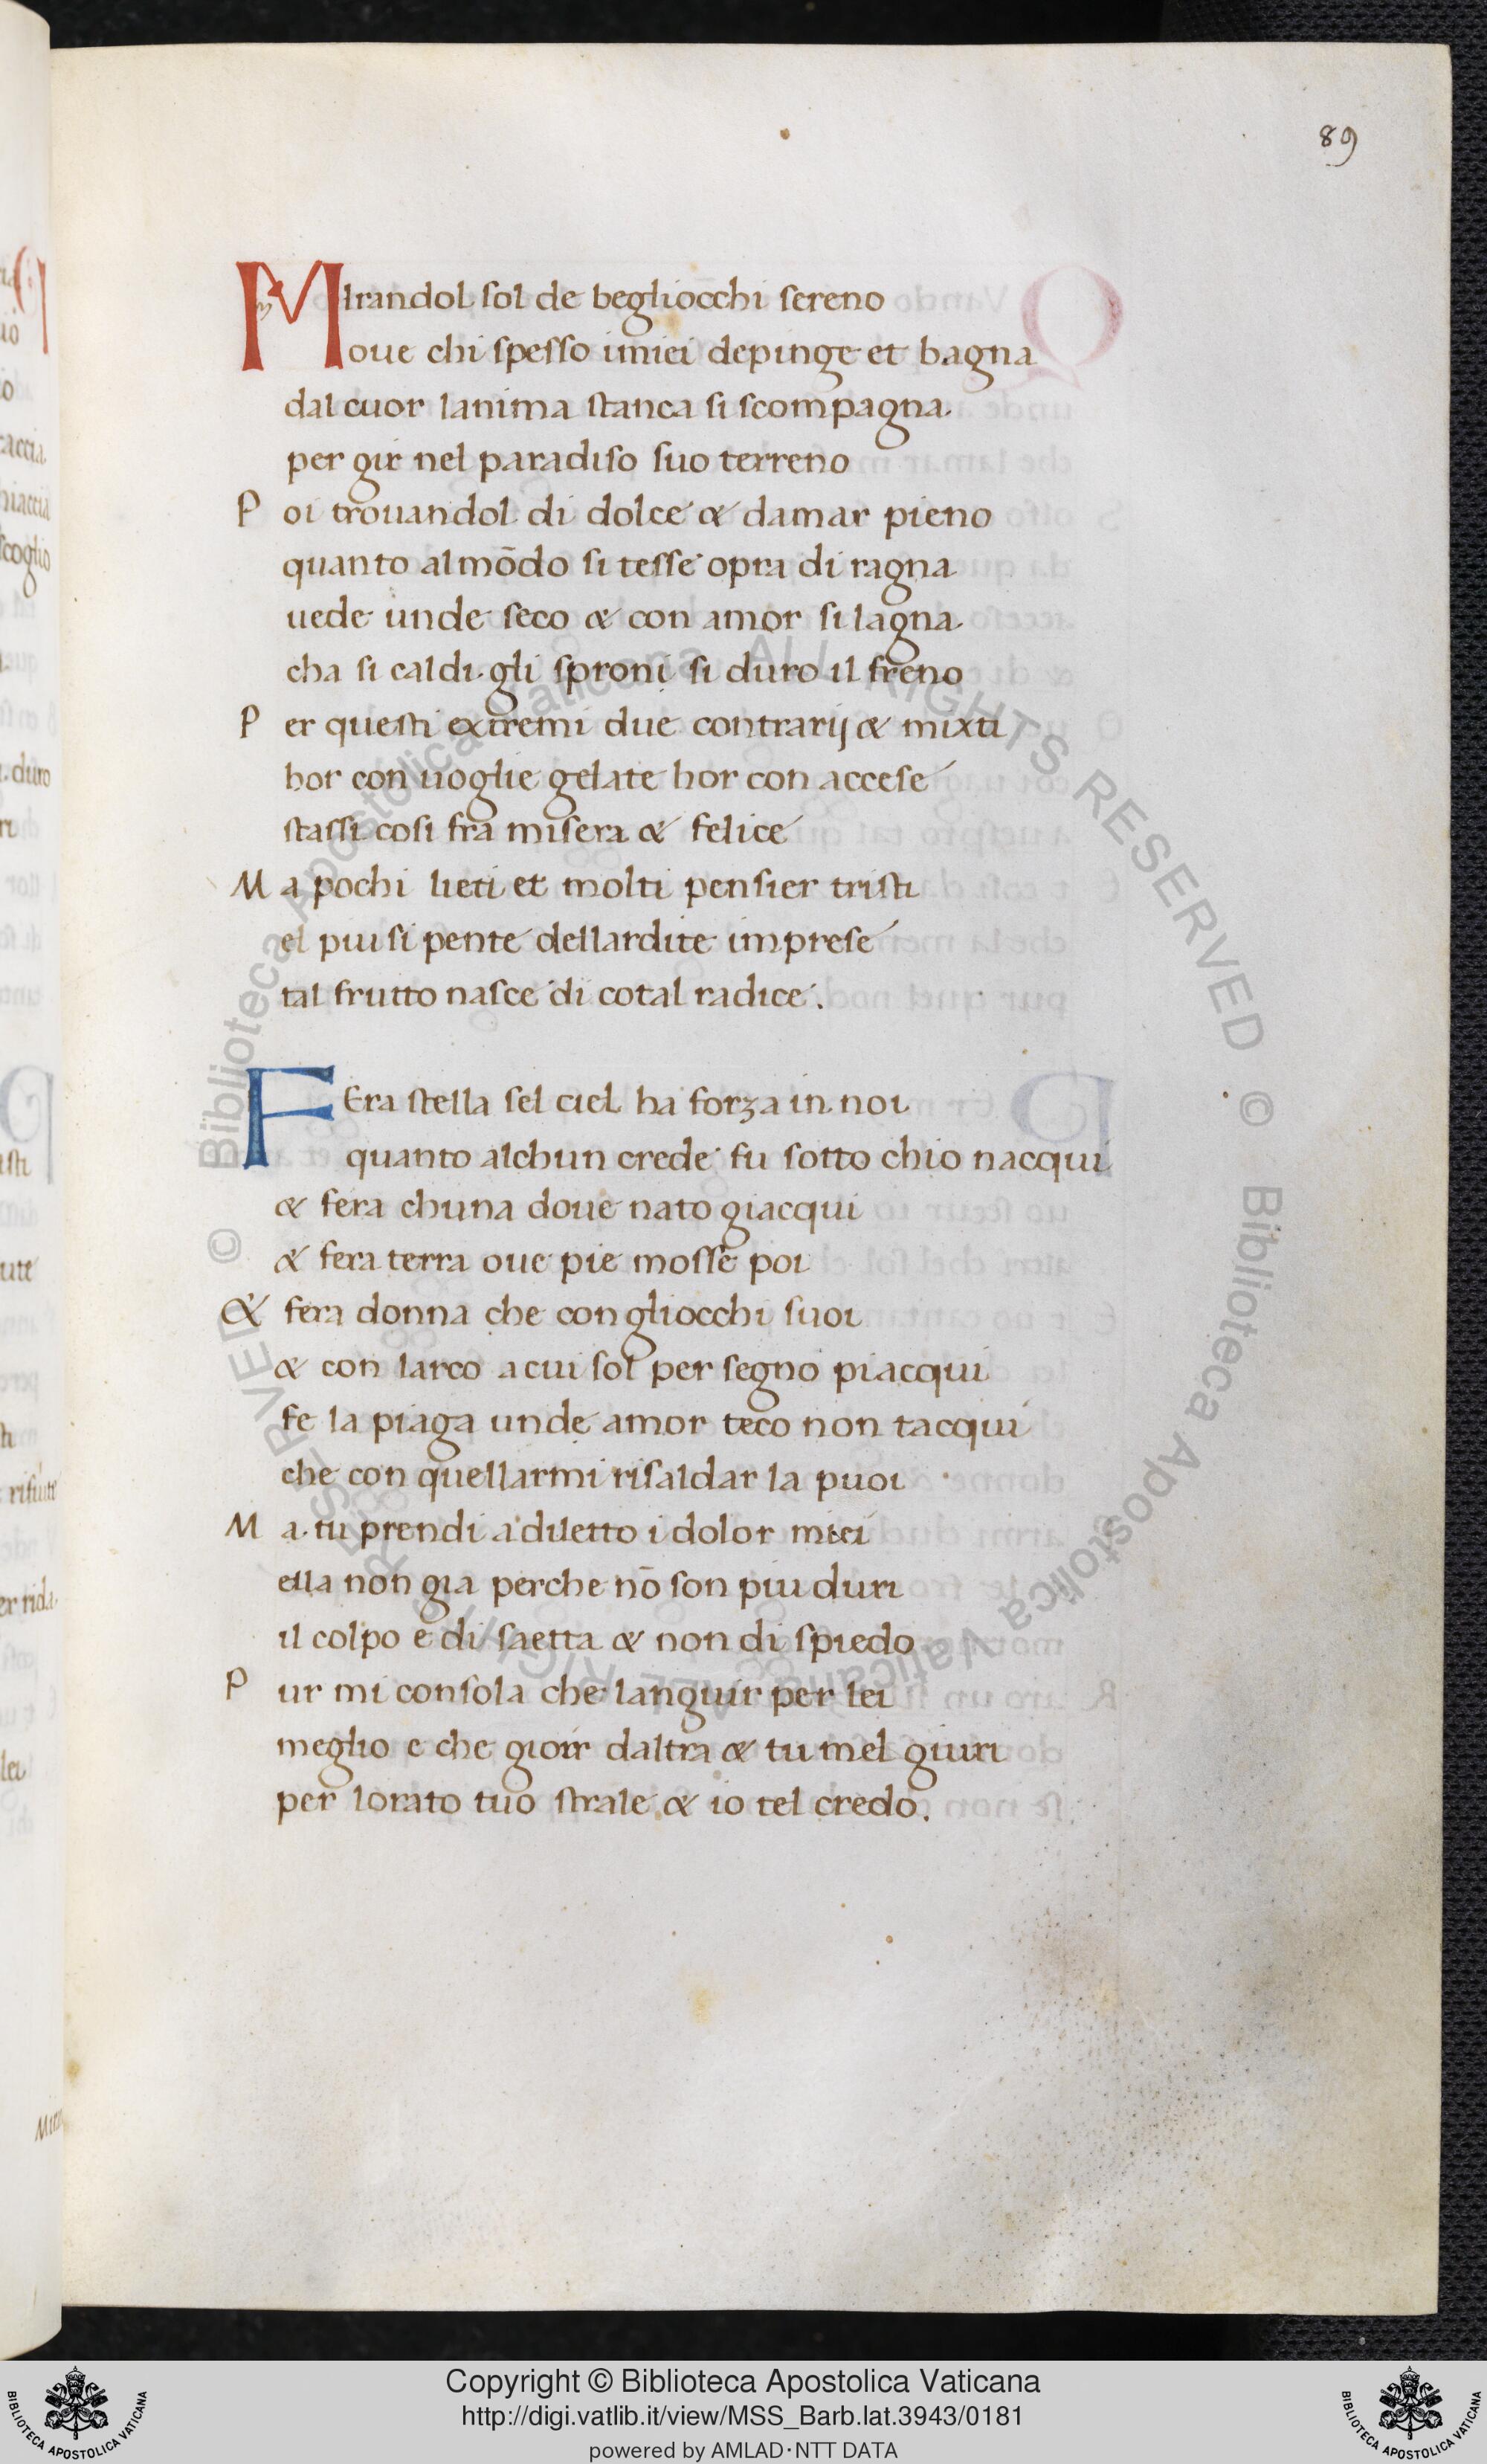 89
MIrandol sol de begliocchi sereno
oue chi spesso imiei depinge et bagna
dal cuor lanima stanca si scompagna
per gir nel paradiso suo terreno
P oi trouandol di dolce & damar pieno
quanto al mōdo si tesse opra di ragna
uede unde seco & con amor si lagna
cha si caldi gli sproni si duro il freno
P er questi extremi due contrarij & mixti
hor con uoglie gelate hor con accese
stassi cosi fra misera & felice
M a pochi lieti et molti pensier tristi
el piu si pente dellardite imprese
tal frutto nasce di cotal radice.
FEra stella sel ciel ha forza in noi
quanto alchun crede fu sotto chio nacqui
& fera chuna doue nato giacqui
& fera terra oue pie mosse poi
& fera donna che con gliocchi suoi
& con larco a cui sol per segno piacqui
fe la piaga unde amor teco non tacqui
che con quellarmi risaldar la puoi
M a tu prendi a diletto i dolor miei
ella non gia perche nō son piu duri
il colpo e di saetta & non di spiedo
P ur mi consola che languir per lei
meglio e che gioir daltra & tu mel giuri
per lorato tuo strale & io tel credo.
© Biblioteca Apostolica Vaticana ALL RIGHTS RESERVED © Biblioteca Apostolica Vaticana ALL RIGHTS RESERVED
Copyright © Biblioteca Apostolica Vaticana
http://digi.vatlib.it/view/MSS_Barb.lat.3943/0181
powered by AMLAD·NTT DATA
BIBLIOTECA APOSTOLICA VATICANA
BIBLIOTECA APOSTOLICA VATICANA